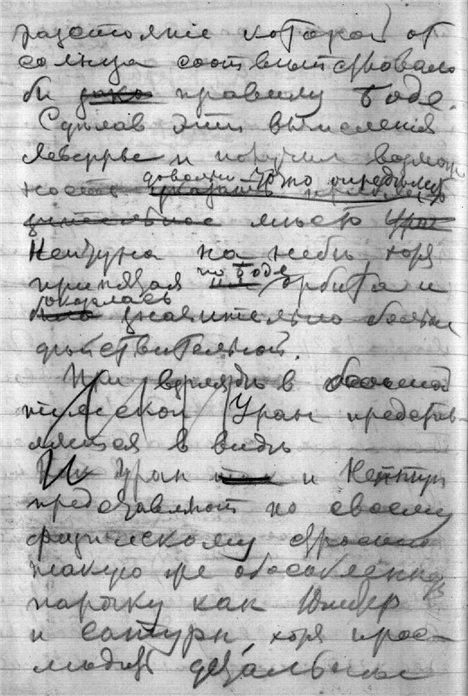 разстояніе которой от
солнца соответствовало
бы правилу Боде.
Сделав эти вычисления
Леверрье и получил возмож
ность довольно точно определить
место Ура
Нептуна на небе, хотя
принятая по Боде орбита и
оказалась значительно больше
действительной.
При взгляде в большой
телескоп Уран представ-
ляется в виде
И Уран и Нептун
представляют по своему
физическому строению
такую же обособленную
парочку как Юпитер
и Сатурн хотя просле-
дить детальные